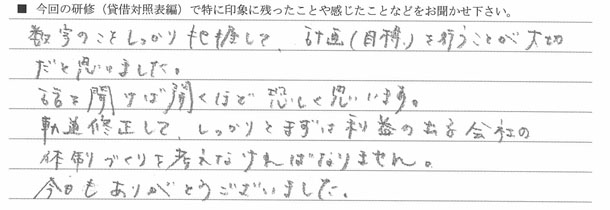 ■ 今回の研修（貸借対照表編）で特に印象に残ったことや感じたことなどをお聞かせ下さい。
数字のことしっかり把握して、計画（目標）を行うことが大切
だと思いました。
話を聞けば聞くほど恐しく思います。
軌道修正して、しっかりとまずは利益の出る会社の
体制づくりを考えなければなりません。
今日もありがとうございました。